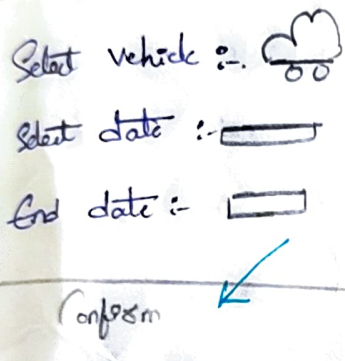 Select vehicle :-
Select date :-
End date :-
Conform